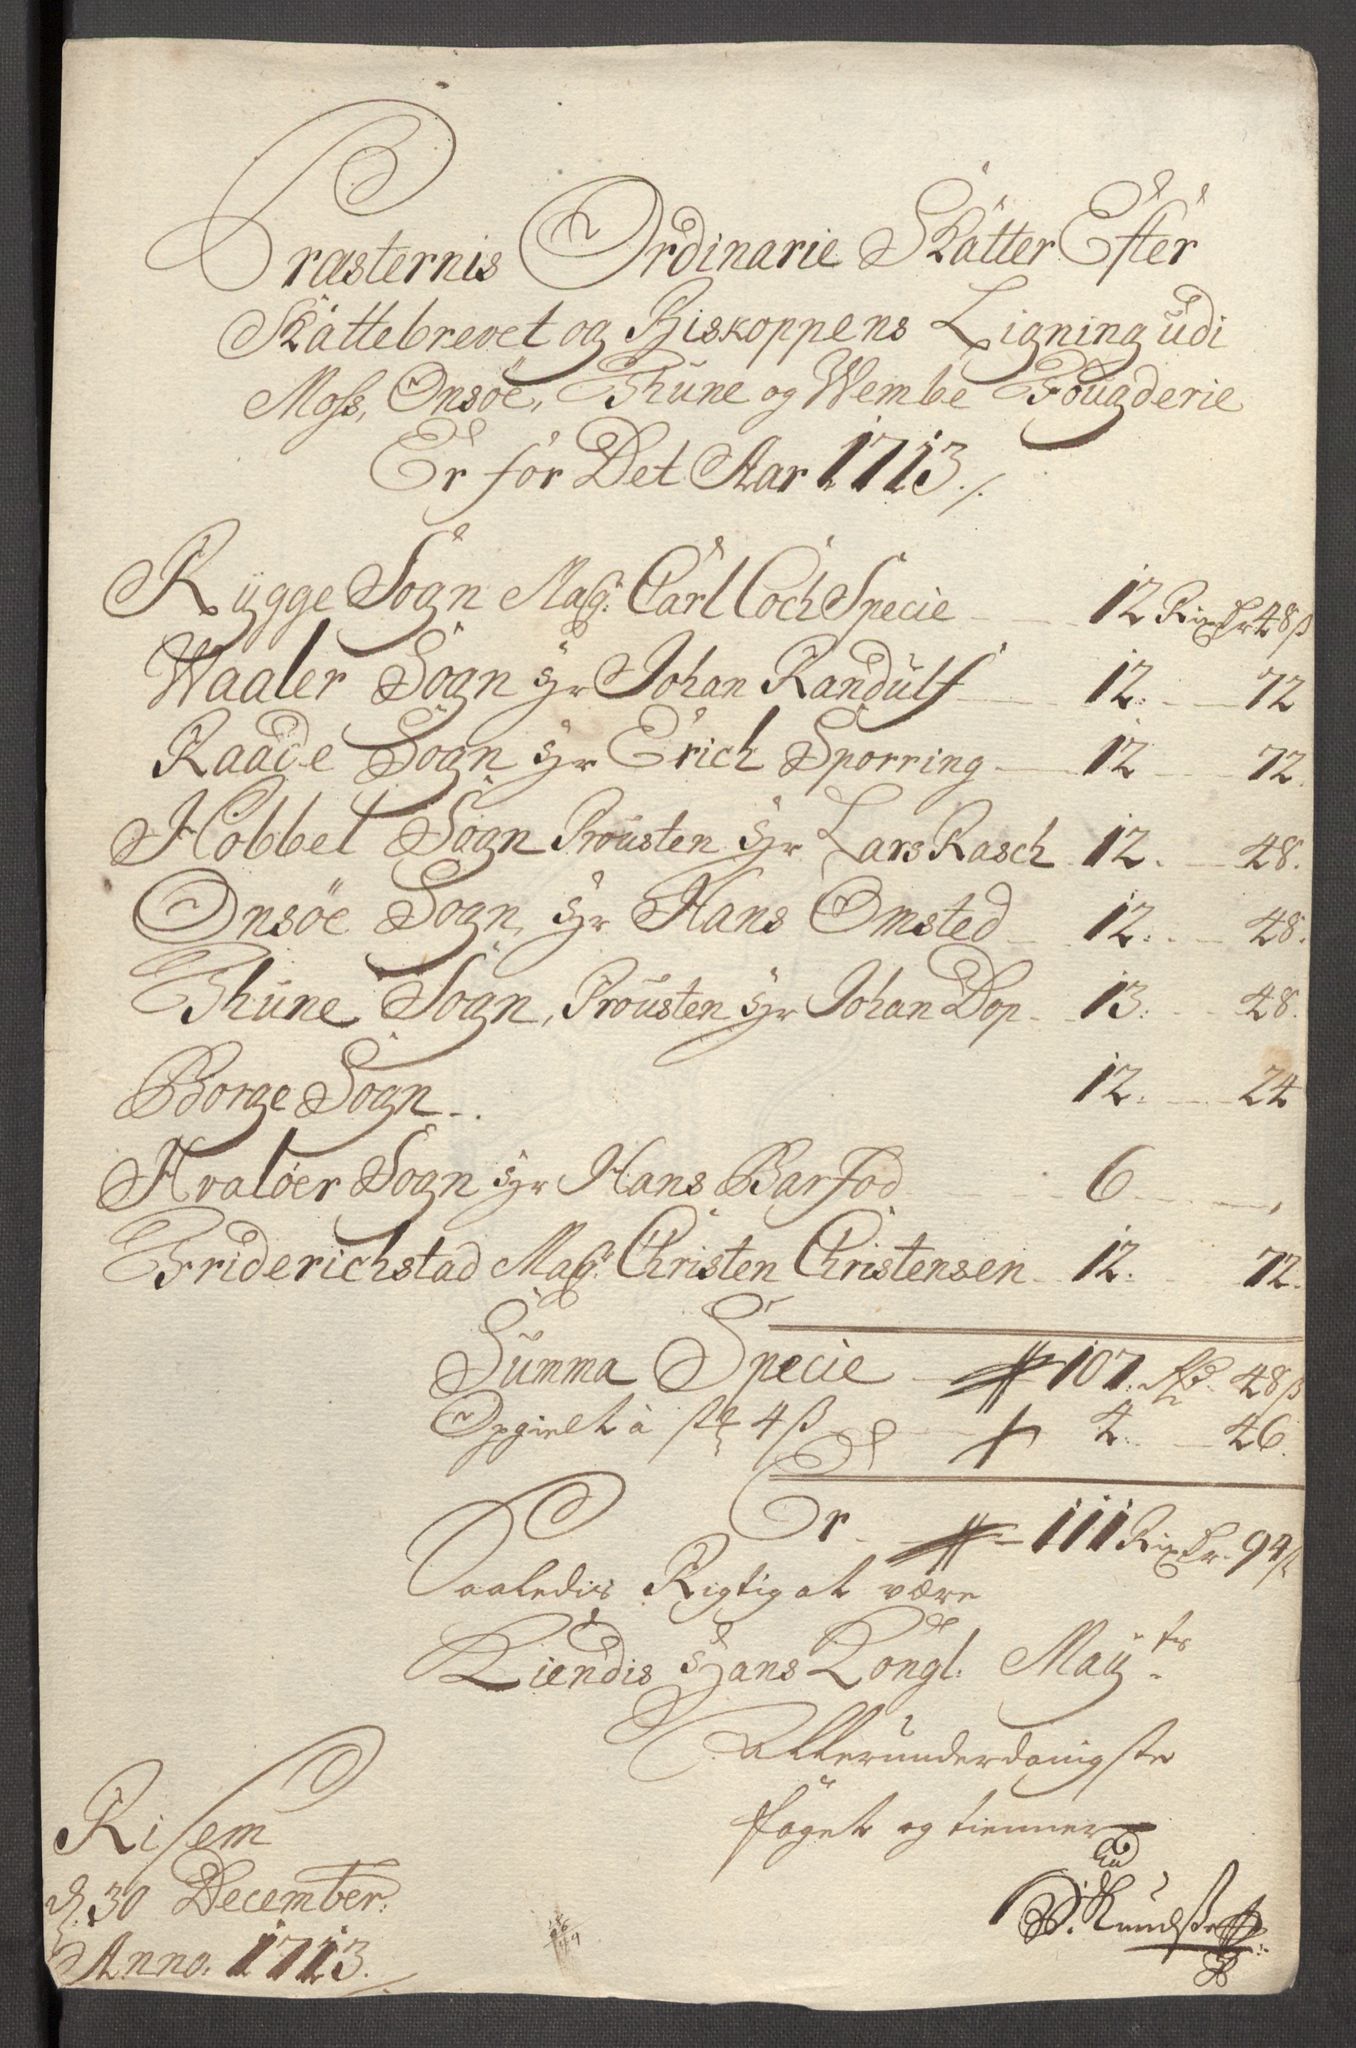 Præsternis Ordinarie Skatter Efter
Skattebrevet og Biskoppens Ligning udi
Moss, Onsöe, Thune og Wembe Fougderie
Er for Det Aar 1713 ./.
Rygge Sogn Mag: Carl Coch Specie 12 Rixdr 48 ß
Waaler Sogn Hr Johan Randulf 12. 72
Raade Sogn Hr Erich Sporring 12 72.
Hobbel Sogn Prousten Hr Lars Rasch 12. 48.
Onsöe Sogn, Hr Hans Omsted 12. 48.
Thune Sogn, Prousten Hr Johan Dop 13. 48.
Borge Sogn 12. 24
Hvaløer Sogn Hr Hans Barfod 6
Friderichstad Mag: Christen Christensen 12. 72.
Summa Specie 107. Rd. 48 ß
Opgielt à 4 ß 4. 46.
Er 111 Rixdr. 94 ß
Saaledis Rigtig at være
Kiendis Hans Kongl: Mayts
Allerunderdanigste
foget og tienner
Risem
d. 30 December.
Anno. 1713.